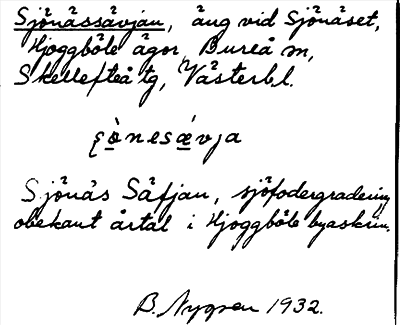 Sjönässävjan, äng vid Sjönäset,
Hjoggböle ägor, Bureå sn,
Skellefteå tg, Västerb l.
Sjönäs Säfjan, sjöfodergradering
obekant årtal i Hjoggböle byaskrin.
B. Nygren 1932.